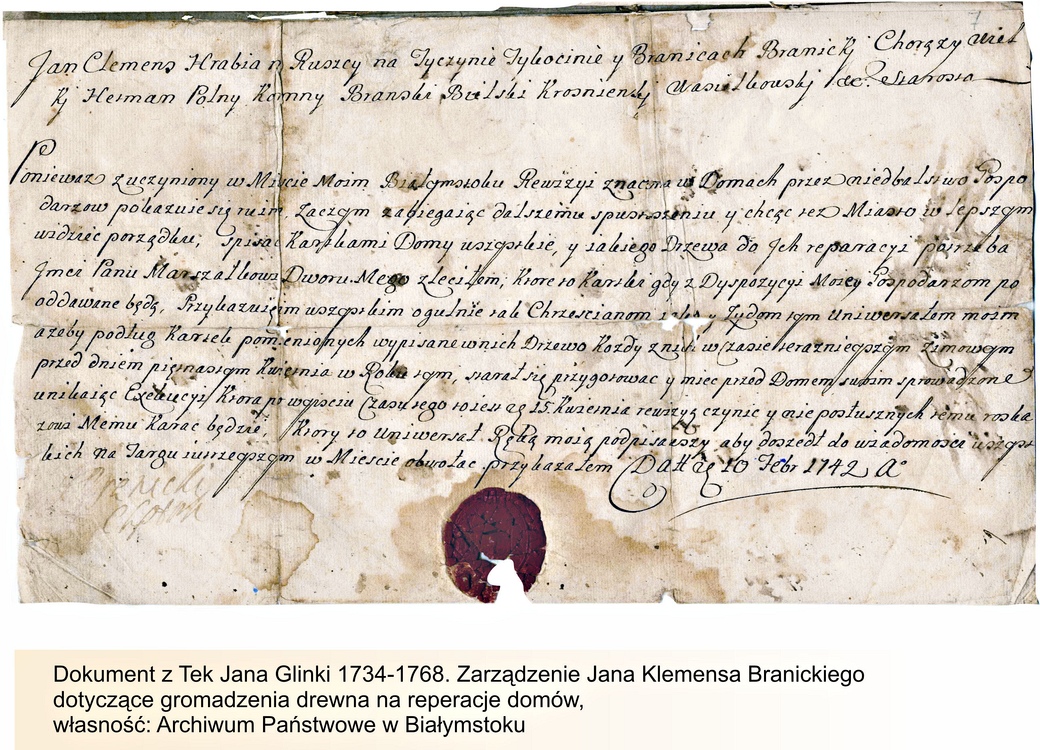 Jan Clemens Hrabia n Ruszcy na Tyczynie Tykocinie y Branicach Branicky Chorązy Wiel
ky Hetman Polny Koronny Branski Bielski Krosnienski Wasilkowskj &c. Starosta
Poniewaz z uczynioney w Miescie Moim Białymstoku Rewizyi znaczna w Domach przez niedbalstwo Gospo
darzow pokazuie się ruina, Zaczym zabiegaiąc dalszemu spustoszeniu y chcąc tez Miasto w lepszym
widziec porządku, spisac Kartkami Domy wszystkie, y iakiego Drzewa do Jch reparacyi potrzeba
Jmci Panu Marszałkowi Dworu Mego zleciłem, Ktore to Kartki gdy z Dyspozycyi Moiey Gospodarzom po
oddawane będą, Przykazuię im wszystkim ogulnie tak Chrzescianom y Zydom tym Uniwersałem moim
azeby podług Kartek pomienionych wypisane w nich Drzewo Kozdy z nich w Czasie teraznieyszym Zimowym
przed dniem piętnastym Kwietnia w Roku tym, starał się przygotowac y miec przed Domem swoim sprowadzone
unikaiąc Exekucyi Ktora po wysciu Czasu tego to iest 15 Kwietnia rewizyą czynic y nieposłusznych temu roska
zowi Memu Karac będzie. Ktory to Uniwersał Ręką moią podpisawszy aby doszedł do wiadomosci wszyst
kich na Targu iutrzeyszym w Miescie obwołac przykazałem Datt 10 Febr 1742 A°
Dokument z Tek Jana Glinki 1734-1768. Zarządzenie Jana Klemensa Branickiego
dotyczące gromadzenia drewna na reperacje domów,
własność: Archiwum Państwowe w Białymstoku